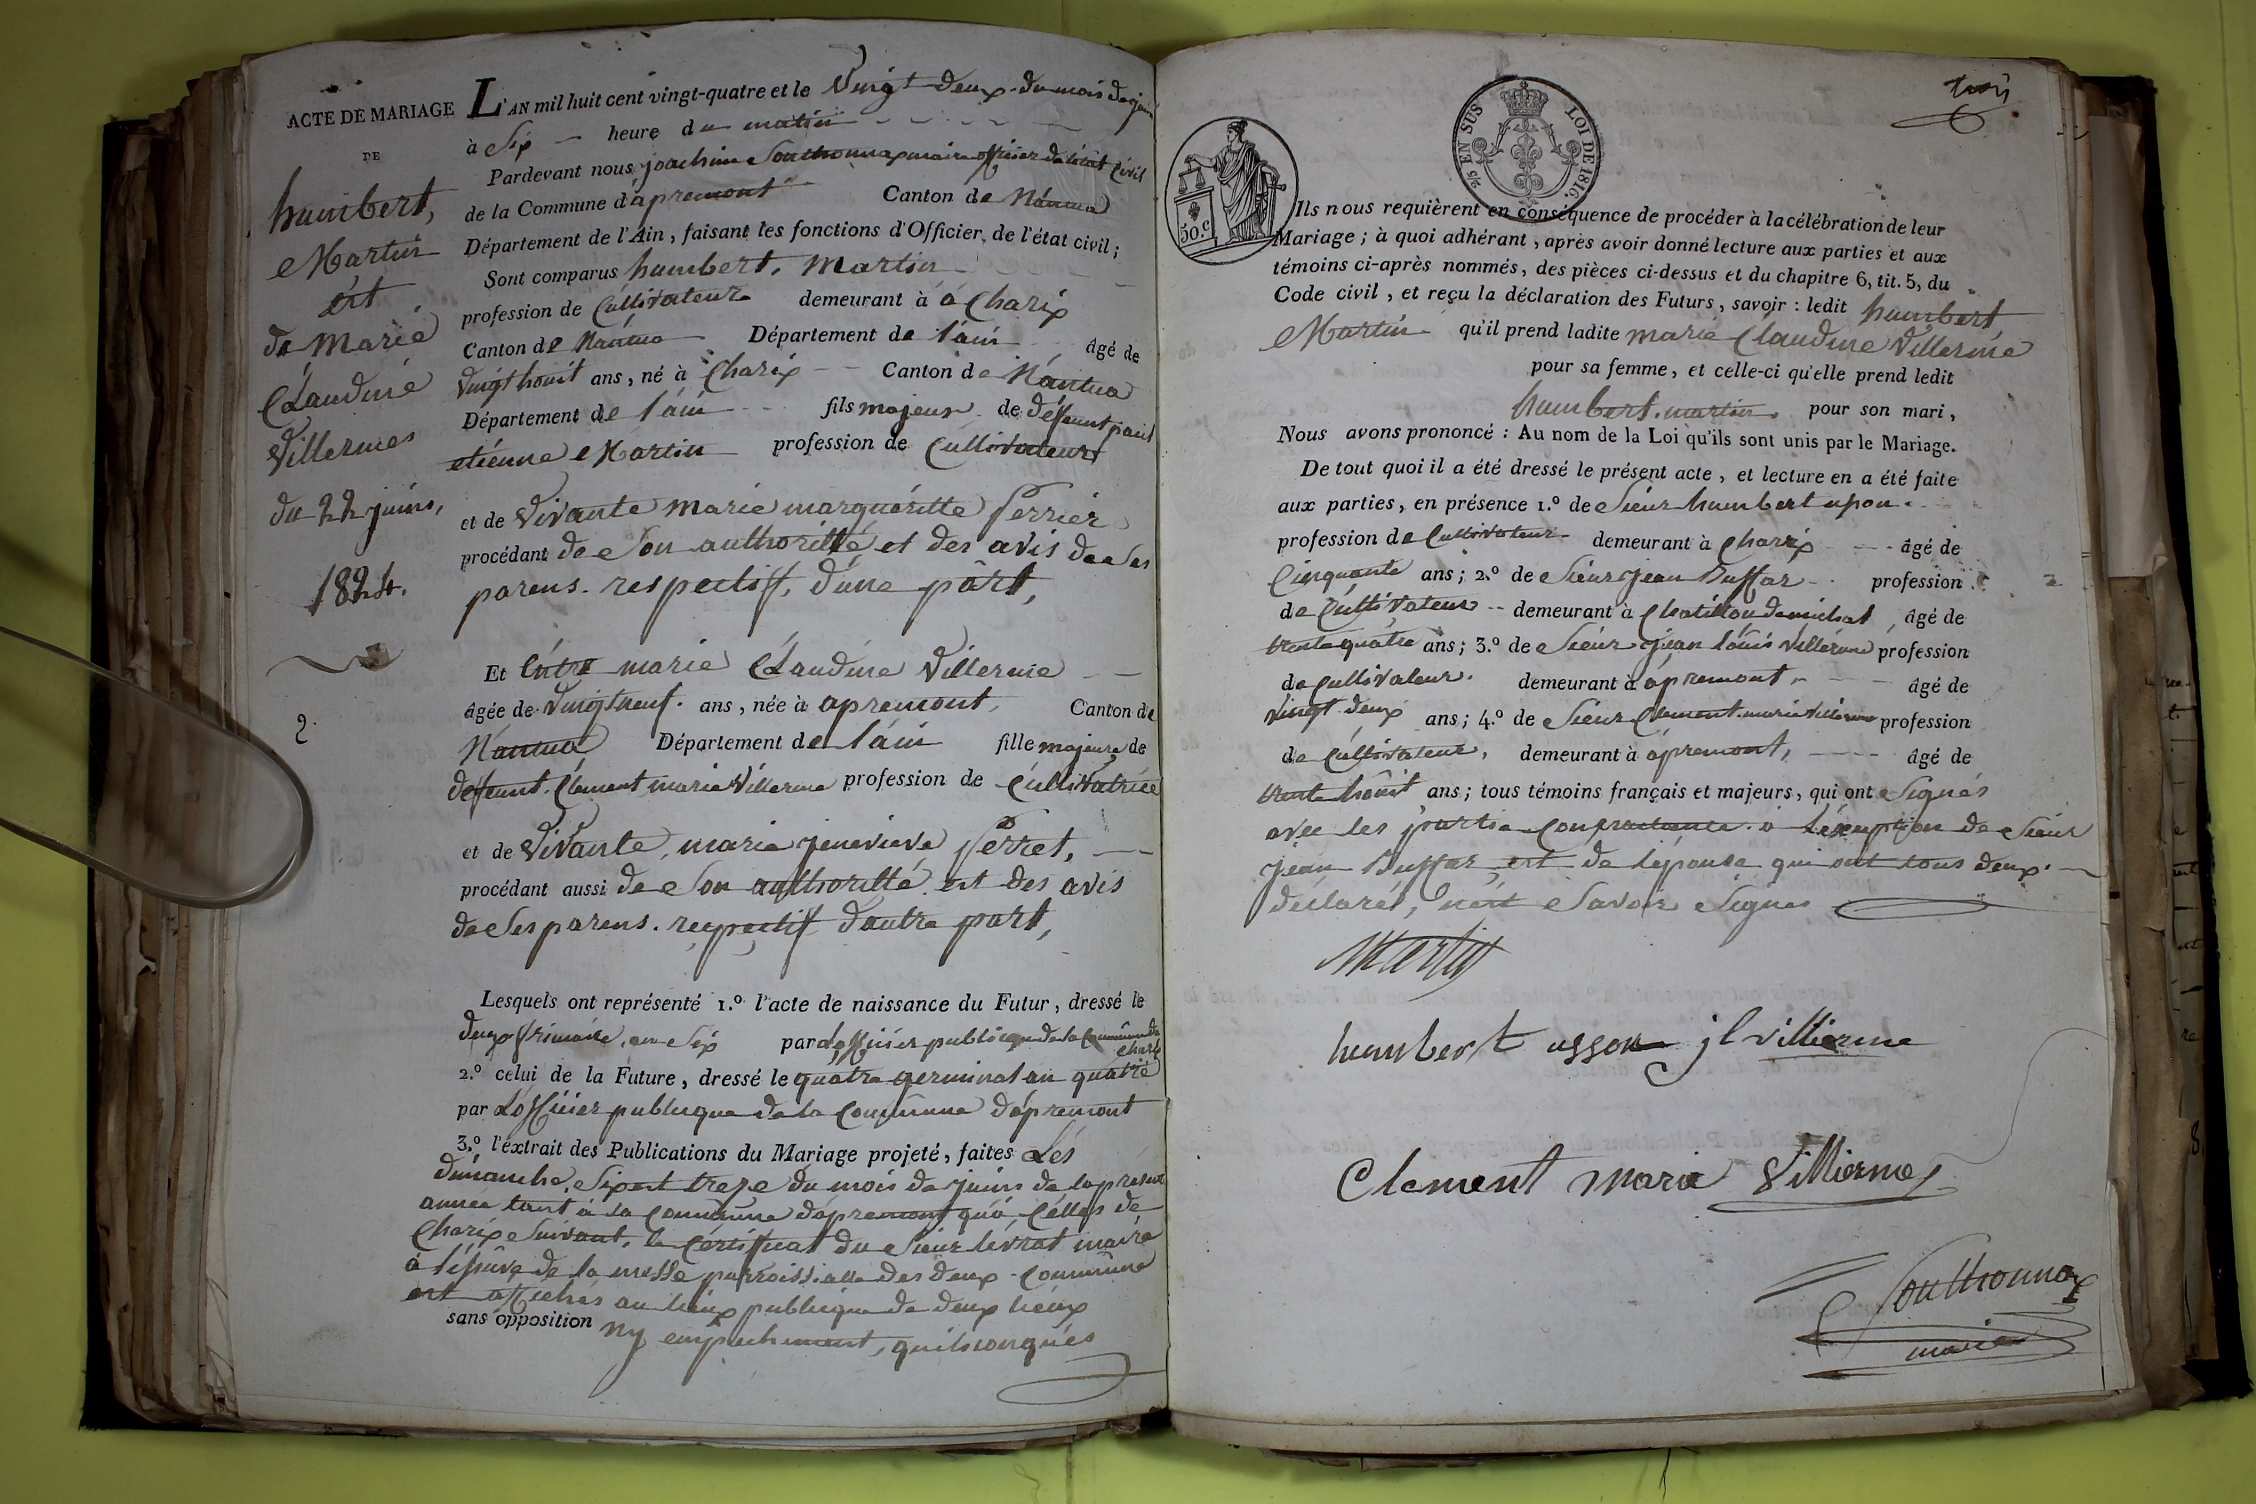 ACTE DE MARIAGE
DE
humbert,
Martin
ét
de Marié
Claudine
Villermes
du 22 juins,
1824.
2.
L'AN mil huit cent vingt-quatre et le Vingt deux du mois de juin
à Six heure du matin
Pardevant nous joachim Southonnax maire officier de l'état Civil
de la Commune d'apremont Canton de Nantua
Département de l'Ain, faisant les fonctions d'Officier de l'état civil;
Sont comparus humbert, Martin
profession de Cultivateur demeurant à á Charix
Canton de Nantua Département de l'ain âgé de
Vingt houit ans, né à Charix Canton de Nantua
Département de l'ain fils majeur de déffunt
etiénne Martin profession de Cultivateur
et de Vivante Marie marguéritte Perrier
procédant de Son authorité et des avis de Ses
parens. respectif, d'une pârt,
Et Entre marie Claudine Villerme
âgée de Vingt neuf. ans, née à apremont, Canton de
Nantua Département de l'ain fille majeure de
deffunt. Clement marie Villerme profession de Cultivatrice
et de Vivante, marie jenevieve Perret,
procédant aussi de Son authoritté. ét des avis
de Ses parens. respectif d'autre part,
Lesquels ont représenté 1.º l'acte de naissance du Futur, dressé le
frimaire, an Six par L'officier publicque de la Commune de
Charix
2.º celui de la Future, dressé le quatre germinal an quatre
par L'officier publicque de la Commune d'apremont
3.º l'extrait des Publications du Mariage projeté, faites Lés
dimanche, Six et treze du mois de juins de la présent
année tant à la Commune d'apremont qu'a Celles de
Charix Suivant, le Certifficat du Sieur levrat maire
à l'issüe de la messe parroissialle des deux Commune
ért affichés au lieux publicque de deux lieux
sans opposition ny empechement, quelsconqués
troi
2/5 EN SUS LOI DE 1816.
50.c
Ils nous requièrent en conséquence de procéder à la célébration de leur
Mariage; à quoi adhérant, après avoir donné lecture aux parties et aux
témoins ci-après nommés, des pièces ci-dessus et du chapitre 6, tit. 5, du
Code civil, et reçu la déclaration des Futurs, savoir: ledit humbert
Martin qu'il prend ladite marie Claudine Villermé
pour sa femme, et celle-ci qu'elle prend ledit
humbert. martin. pour son mari,
Nous avons prononcé: Au nom de la Loi qu'ils sont unis par le Mariage.
De tout quoi il a été dressé le présent acte, et lecture en a été faite
aux parties, en présence 1.º de Siéur humbert
profession de Cultivateur demeurant à Charix âgé de
Cinquante ans; 2.º de Siéur Jean Buffar profession
de Cultivateur demeurant à Chatillon de michal âgé de
trente quatre ans; 3.º de Siéur jéan loüis Villérme profession
de Cultivateur. demeurant à apremont, âgé de
Vingt deux ans; 4.º de Siéur Clement marie Villerme profession
de Cultivateur, demeurant à apremont, âgé de
trente hoüit ans; tous témoins français et majeurs, qui ont Signés
avec les partie Contractante. a L'éxeption de Siéur
jean Buffar ért de l'épouse qui ont tous deux.
déclarés, nért Savoir Signer
Martin
humbert jl villierme
Clement Marie Villierme
Southonnax
maire